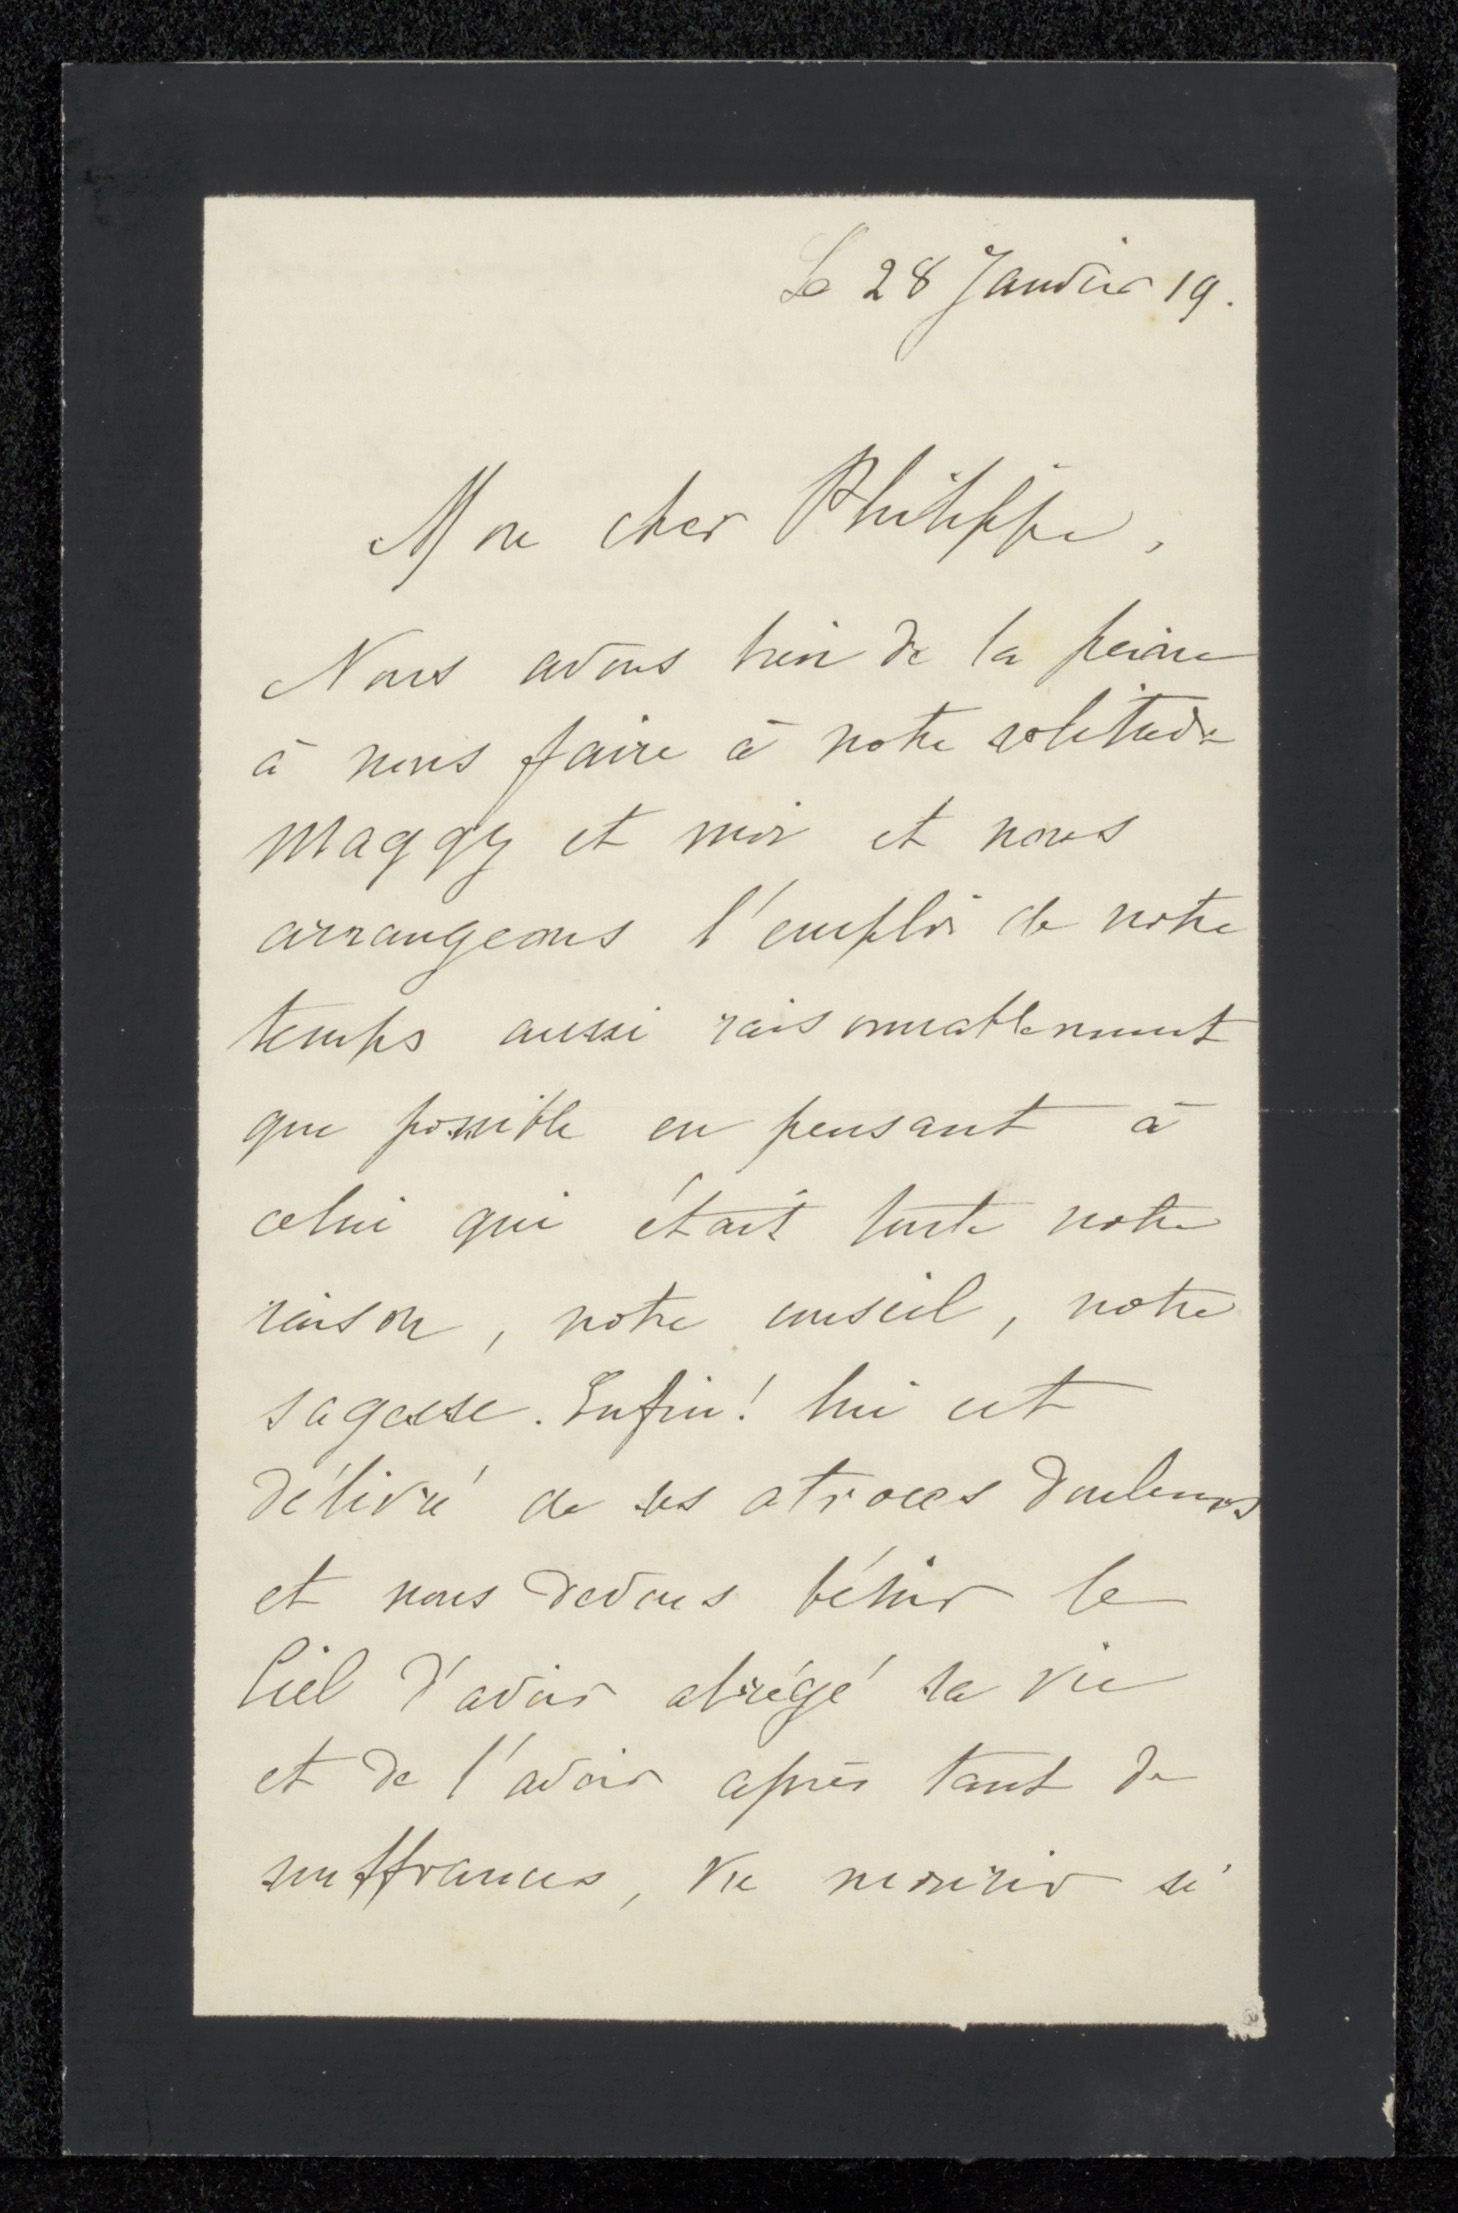 Le 28 Janvier 19.
Mon cher Philippe,
Nous avons bien de la peine
à nous faire à notre solitude
Maggy et moi et nous
arrangeons l'emploi de notre
temps aussi raisonnablement
que possible en pensant à
celui qui était toute notre
raison, notre conseil, notre
sagesse. Enfin! lui est
délivré de ses atroces douleurs
et nous devons bénir le
Ciel d'avoir abrégé sa vie
et de l'avoir après tant de
souffrances, vu mourir si